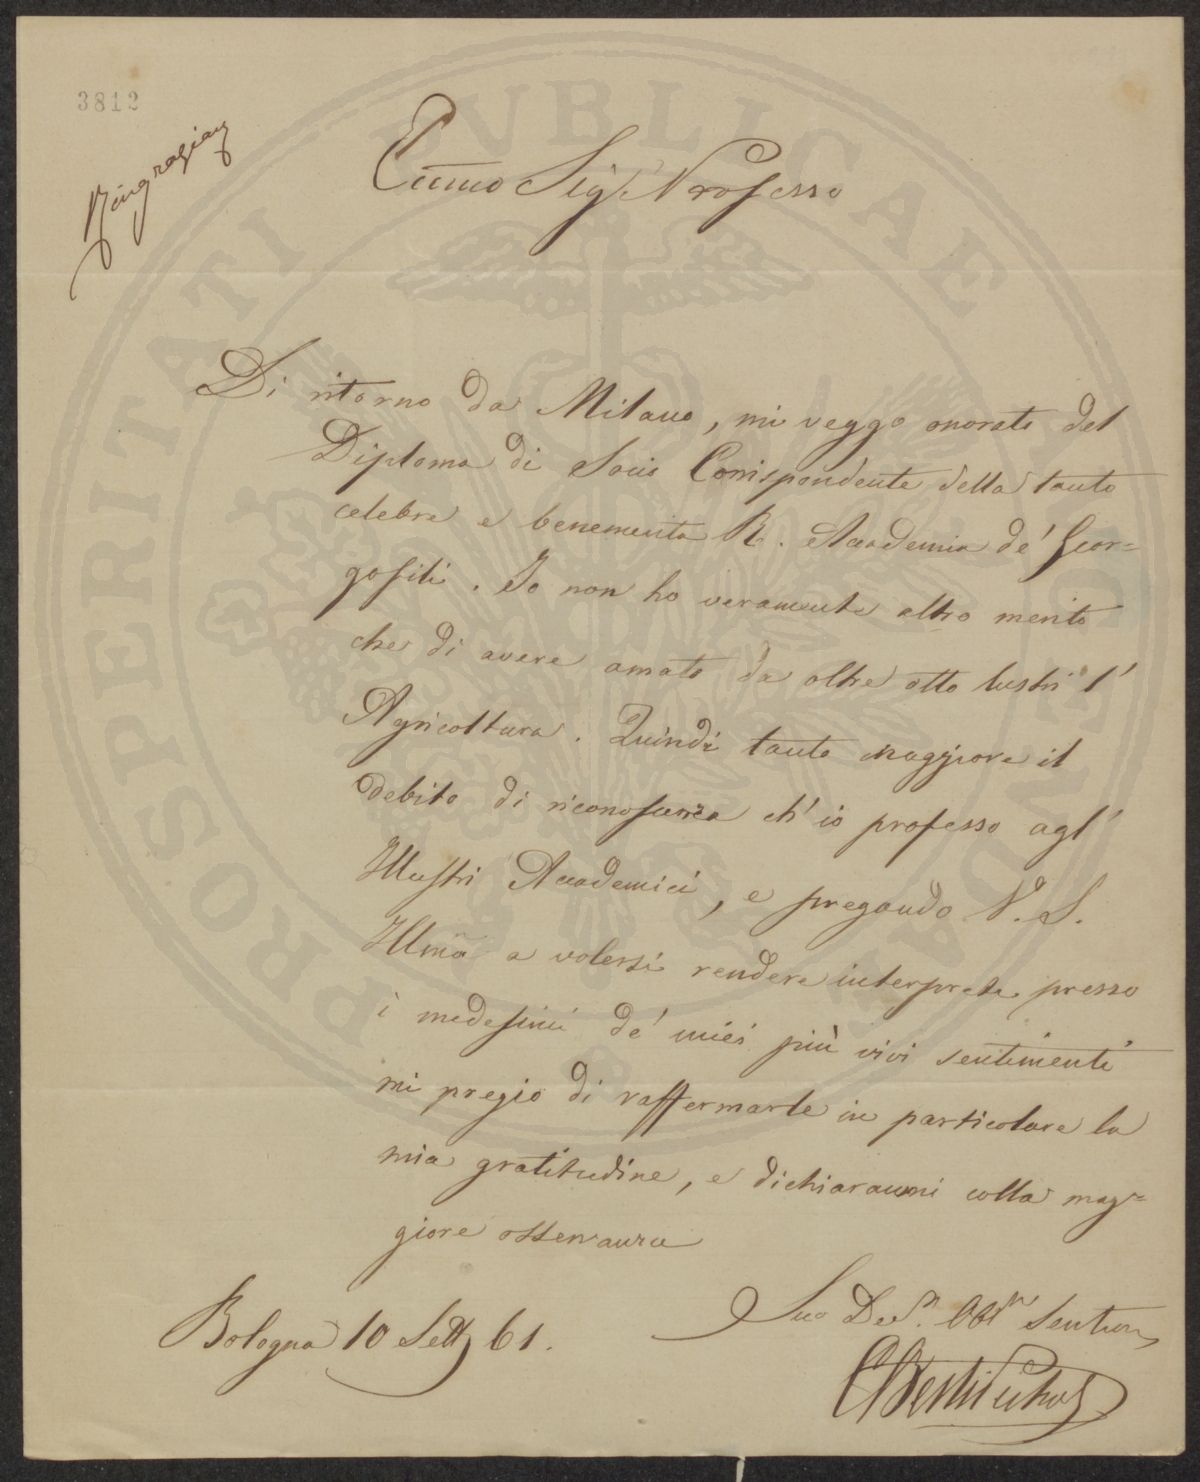 3812
Ringraziam
Ecc.mo Sig.r Professo
Di ritorno da Milano, mi veggo onorato del
Diploma di Socio Corrispondente della tanto
celebre e benemerita R. Accademia de' Geor=
gofili. Io non ho veramente altro merito
che di avere amato da oltre otto lustri l'
Agricoltura. Quindi tanto maggiore il
debito di riconoscenza ch' io professo agl'
Illustri Accademici, e pregando V. S.
Illma a volersi rendere interprete presso
i medesimi de' miei più vivi sentimenti
mi pregio di raffermarle in particolare la
mia gratitudine, e dichiararmi colla mag=
giore osservanza
Bologna 10 Sett 61.
Suo Dev. Obb.
PROSPERITATI PVBLICAE AVGENDAE